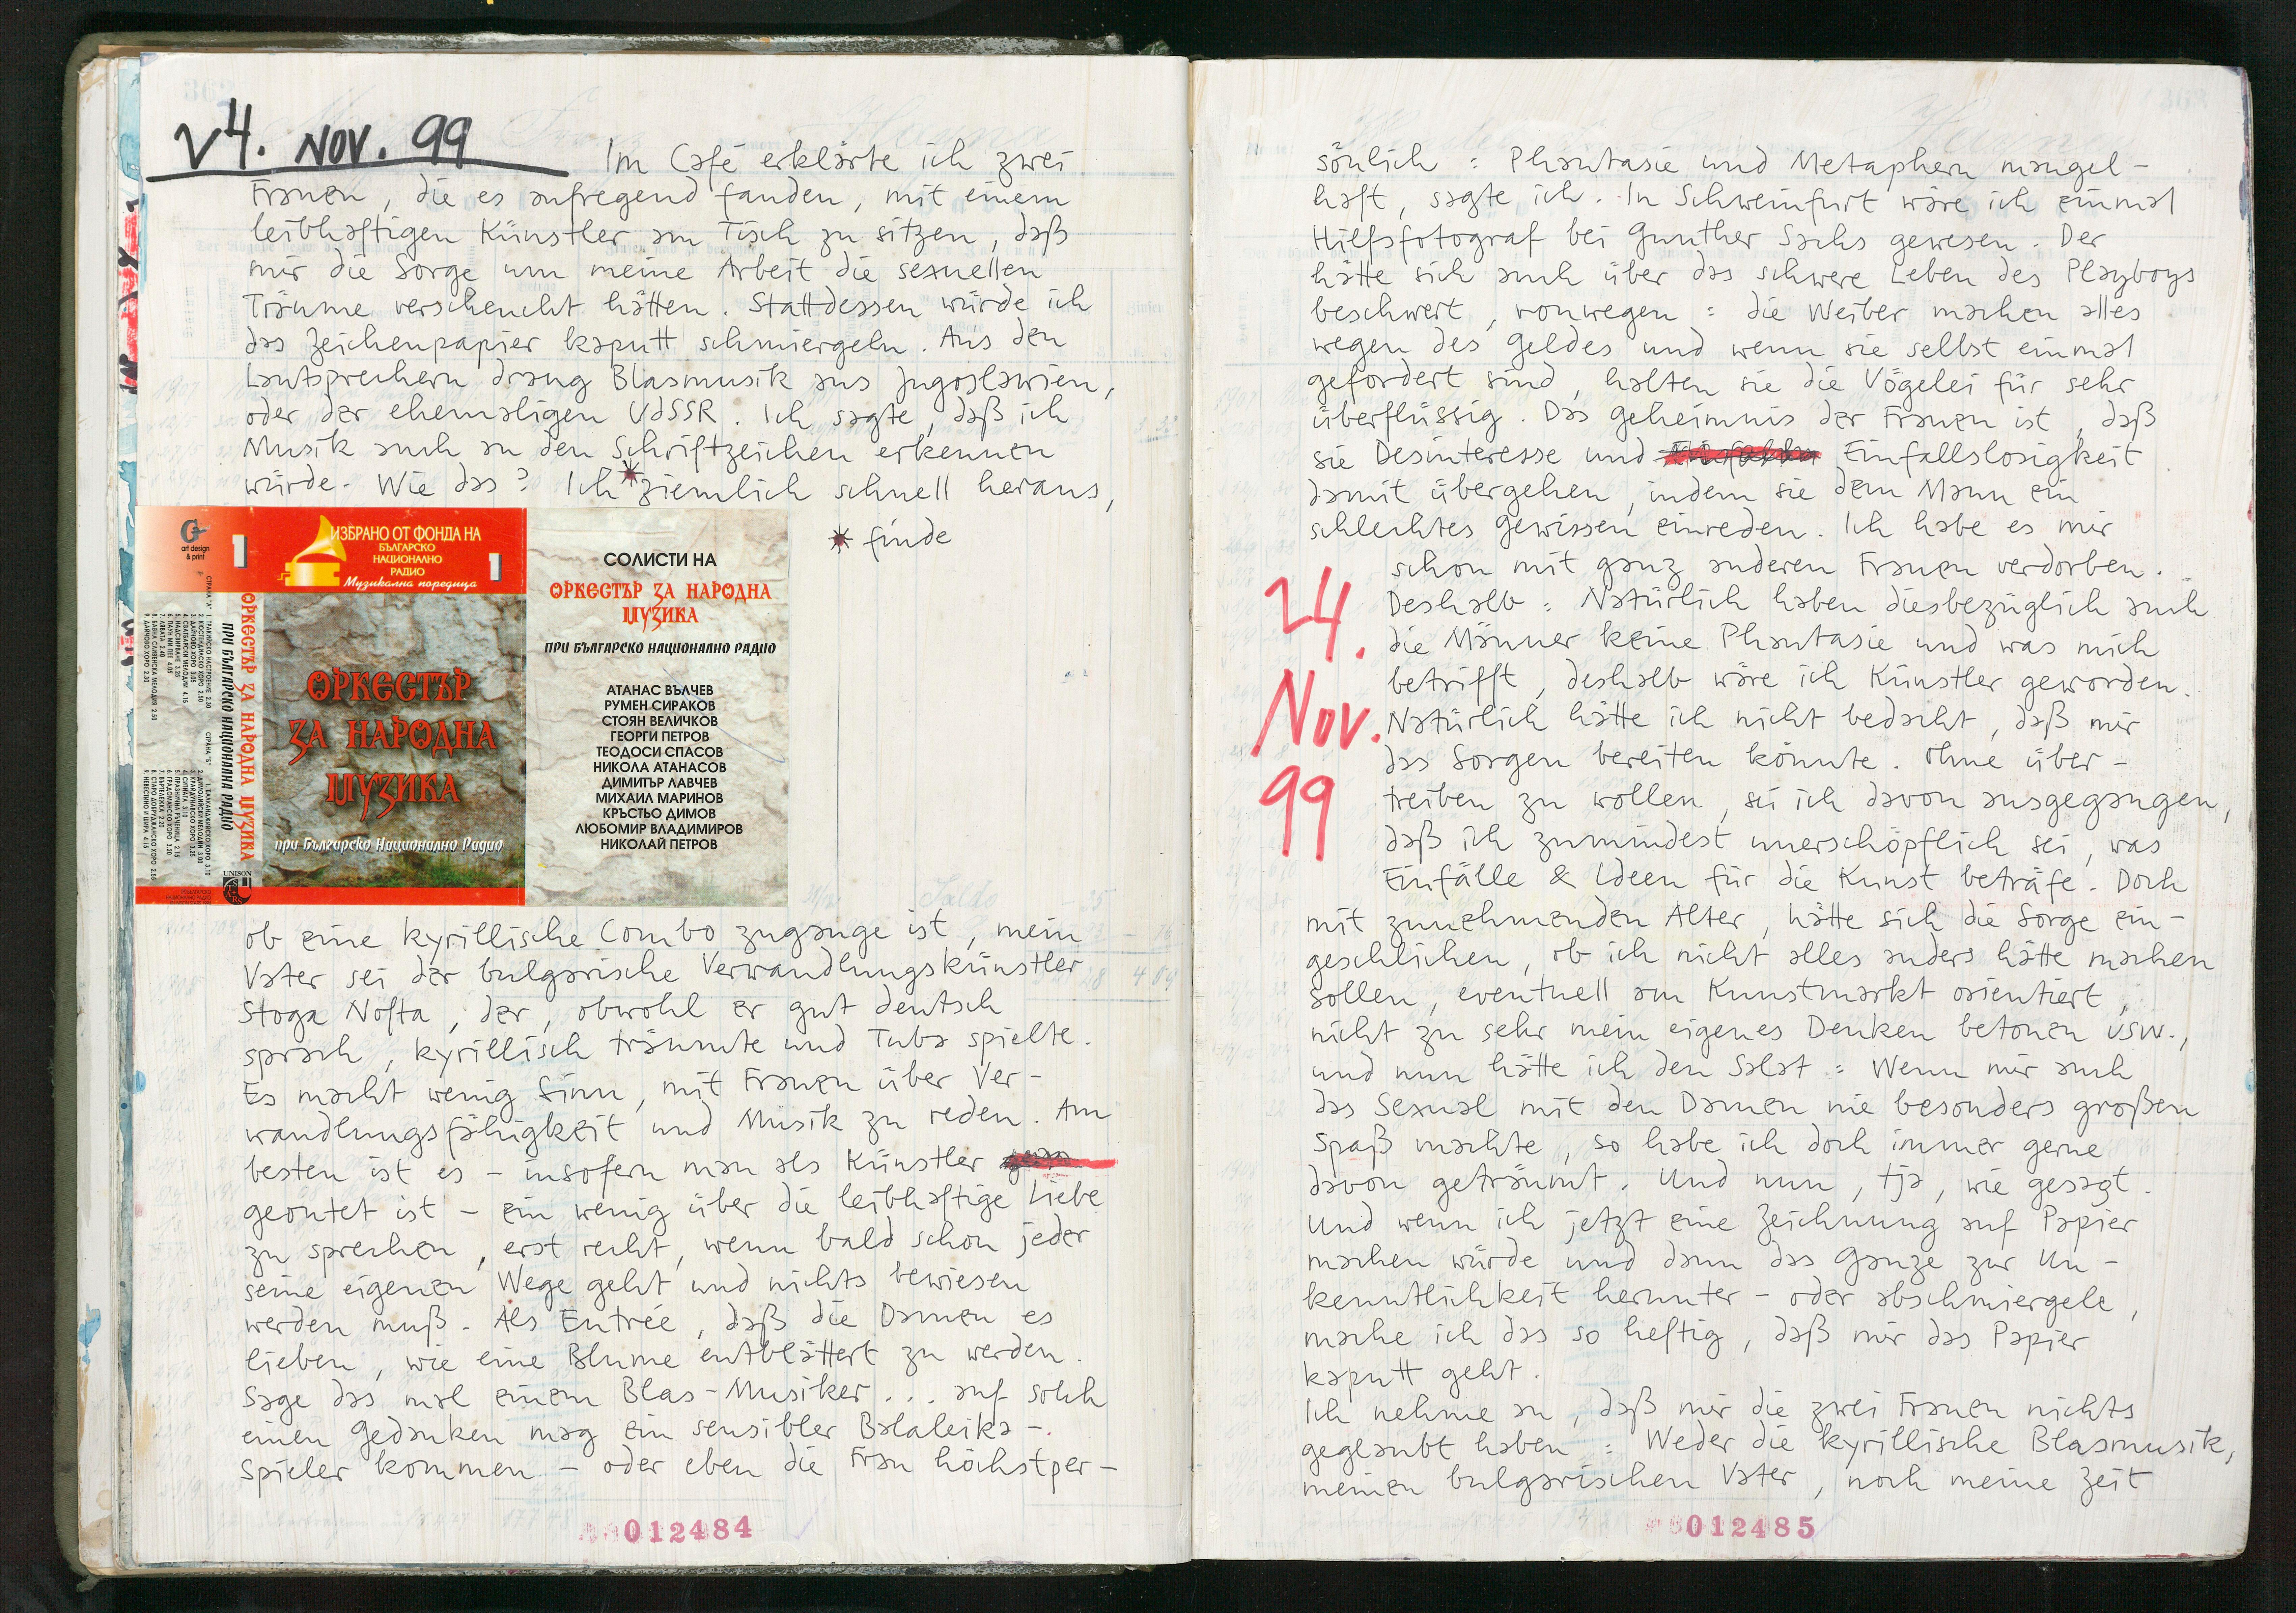 24. NOV. 99
Im Café erklärte ich zwei
Frauen, die es aufregend fanden, mit einem
leibhaftigen Künstler am Tisch zu sitzen, daß
mir die Sorge um meine Arbeit die sexuellen
Träume verscheucht hätten. Stattdessen würde ich
das Zeichenpapier kaputt schmiergeln. Aus den
Lautsprechern drang Blasmusik aus Jugoslawien,
oder der ehemaligen UdSSR. Ich sagte, daß ich
Musik auch an den Schriftzeichen erkennen
würde. Wie das? Ich * ziemlich schnell heraus,
* finde
art design
& print
1
ИЗБРАНО ОТ ФОНДА НА
БЪЛГАРСКО
НАЦИОНАЛНО
РАДИО
Музикална поредица
1
ОРКЕСТЪР ЗА НАРОДНА МУЗИКА
ПРИ БЪЛГАРСКО НАЦИОНАЛНА РАДИО
СТРАНА "А"
1. ТРАКИЙСКО НАСТРОЕНИЕ 2.30
2. КЮСТЕНДИЛСКО ХОРО 2.50
3. ДАЙЧОВО ХОРО 3.05
4. СВАТБАРСКИ МЕЛОДИИ 4.15
5. НАДСВИРВАНЕ 3.25
6. ПАУН МИ ПЕЕ 4.05
7. ЛЯВАТА 2.40
8. БАВНА СЛИВЕНСКА МЕЛОДИЯ 2.50
9. ДАЙЧОВО ХОРО 2.30
СТРАНА "Б"
1. БАЛКАНДЖИЙСКО ХОРО 3.10
4. СИТНАТА 3.10
5. ПРАЗНИЧНА РЪЧЕНИЦА 2.15
6. ГРАДОМАНСКО ХОРО 3.20
7. ВЪРТЕЛЕЖКА 2.20
8. СТАРО ДОБРУДЖАНСКО ХОРО 2.55
UNISON
ОРКЕСТЪР
ЗА НАРОДНА
МУЗИКА
при Българско Национално Радио
СОЛИСТИ НА
ОРКЕСТЪР ЗА НАРОДНА
МУЗИКА
ПРИ БЪЛГАРСКО НАЦИОНАЛНО РАДИО
АТАНАС ВЪЛЧЕВ
РУМЕН СИРАКОВ
СТОЯН ВЕЛИЧКОВ
ГЕОРГИ ПЕТРОВ
ТЕОДОСИ СПАСОВ
НИКОЛА АТАНАСОВ
ДИМИТЪР ЛАВЧЕВ
МИХАИЛ МАРИНОВ
КРЪСТЬО ДИМОВ
ЛЮБОМИР ВЛАДИМИРОВ
НИКОЛАЙ ПЕТРОВ
ob eine kyrillische Combo zugange ist, mein
Vater sei der bulgarische Verwandlungskünstler
Stoga Nofta, der, obwohl er gut deutsch
sprach, kyrillisch träumte und Tuba spielte.
Es macht wenig Sinn, mit Frauen über Ver-
wandlungsfähigkeit und Musik zu reden. Am
besten ist es – insofern man als Künstler
geoutet ist – ein wenig über die leibhaftige Liebe
zu sprechen, erst recht, wenn bald schon jeder
seine eigenen Wege geht und nichts bewiesen
werden muß. Als Entrée, daß die Damen es
lieben, wie eine Blume entblättert zu werden.
Sage das mal einem Blas-Musiker... auf solch
einen Gedanken mag ein sensibler Balaleika-
spieler kommen – oder eben die Frau höchstper-
012484
sönlich : Phantasie und Metaphern mangel-
haft, sagte ich. In Schweinfurt wäre ich einmal
Hilfsfotograf bei Gunther Sachs gewesen. Der
hätte sich auch über das schwere Leben des Playboys
beschwert, vonwegen : die Weiber machen alles
wegen des Geldes und wenn sie selbst einmal
gefordert sind, halten sie die Vögelei für sehr
überflüssig. Das Geheimnis der Frauen ist, daß
sie Desinteresse und Einfallslosigkeit
damit übergehen, indem sie dem Mann ein
schlechtes Gewissen einreden. Ich habe es mir
schon mit ganz anderen Frauen verdorben.
24.
Nov.
99
Deshalb : Natürlich haben diesbezüglich auch
die Männer keine Phantasie und was mich
betrifft, deshalb wäre ich Künstler geworden.
Natürlich hätte ich nicht bedacht, daß mir
das Sorgen bereiten könnte. Ohne über-
treiben zu wollen, sei ich davon ausgegangen,
daß ich zumindest unerschöpflich sei, was
Einfälle & Ideen für die Kunst beträfe. Doch
mit zunehmenden Alter, hätte sich die Sorge ein-
geschlichen, ob ich nicht alles anders hätte machen
sollen, eventuell am Kunstmarkt orientiert,
nicht zu sehr mein eigenes Denken betonen usw.,
und nun hätte ich den Salat : Wenn mir auch
das Sexual mit den Damen nie besonders großen
Spaß machte, so habe ich doch immer gerne
davon geträumt. Und nun, tja, wie gesagt.
Und wenn ich jetzt eine Zeichnung auf Papier
machen würde und dann das Ganze zur Un-
kenntlichkeit herunter – oder abschmiergele,
mache ich das so heftig, daß mir das Papier
kaputt geht.
Ich nehme an, daß mir die zwei Frauen nichts
geglaubt haben : Weder die kyrillische Blasmusik,
meinen bulgarischen Vater, noch meine Zeit
012485